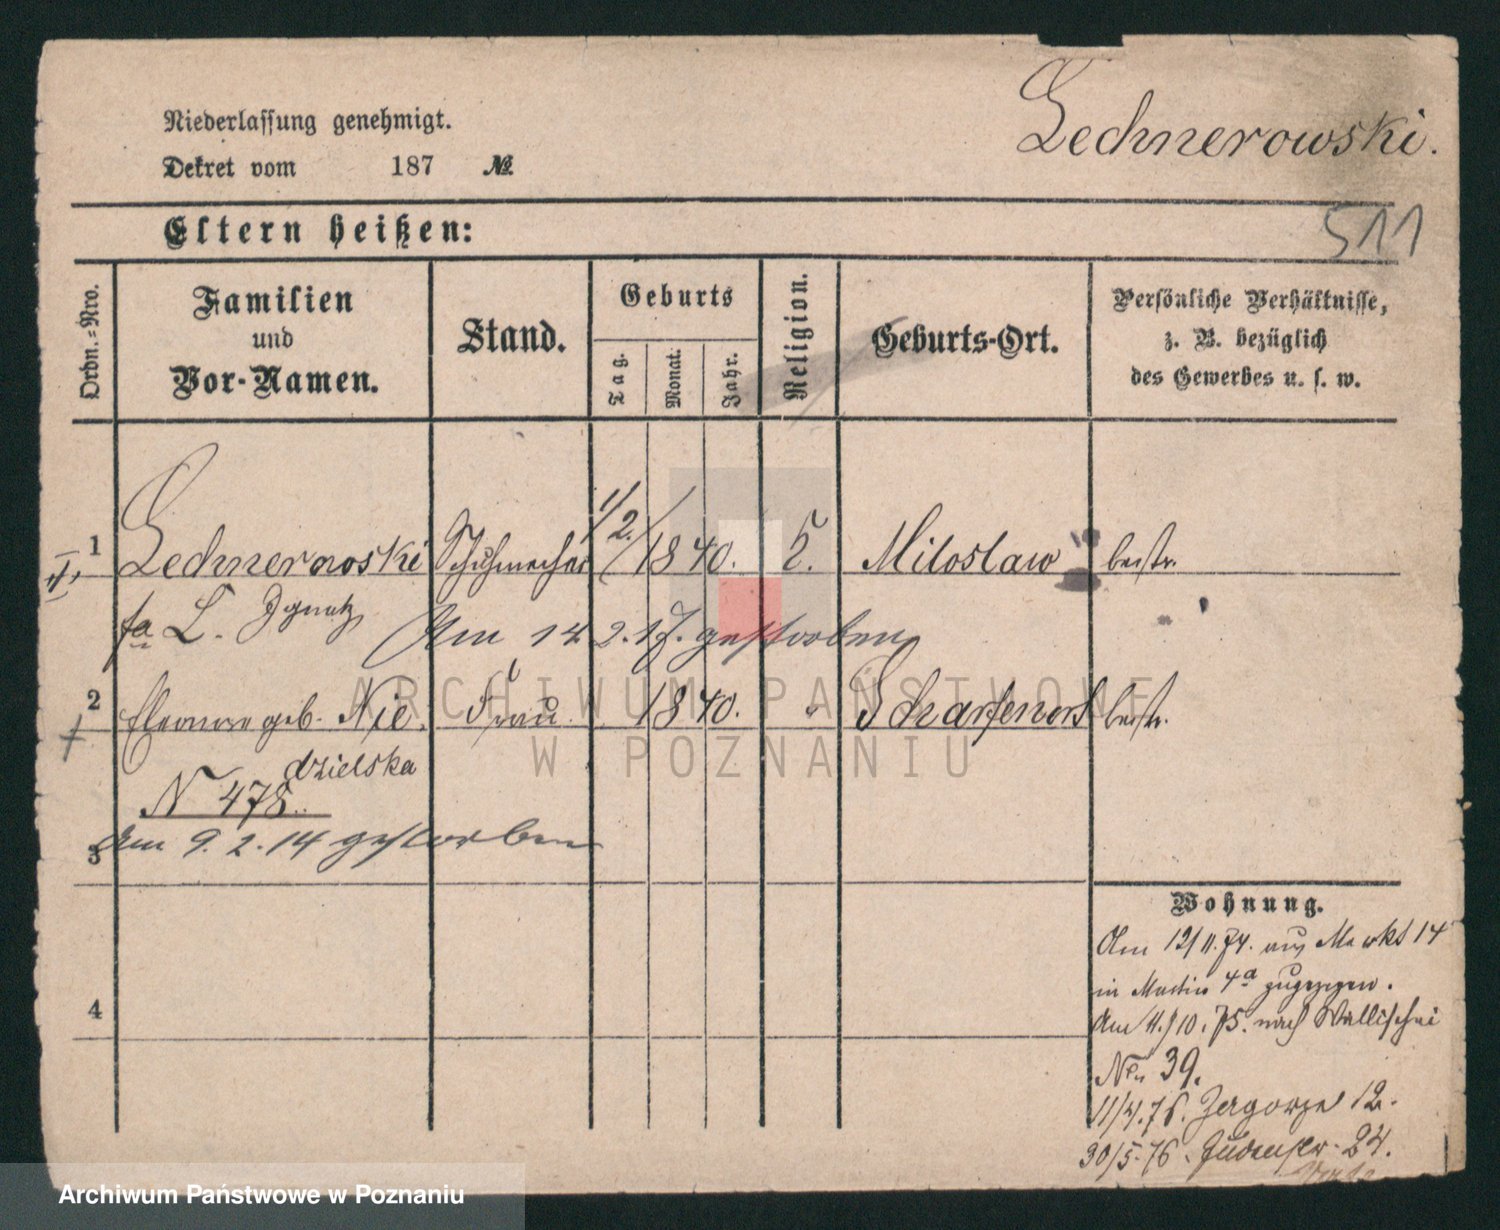 Niederlassung genehmigt.
Dekret vom 187 №
Lechnerowski.
511
Eltern heißen:
Ordn.-Nro.
Familien
und
Vor-Namen.
Stand.
Geburts
Tag.
Monat.
Jahr.
Religion.
Geburts-Ort.
Persönliche Verhältnisse,
z. B. bezüglich
des Gewerbes u. s. w.
1 Lechnerowski Schuhmacher 1/2. 1840. Miloslaw bestr.
L. Ignatz Am 14 2. 17. gestorben
2 Eleonore geb. Nie Frau 1840. " Scharfenort bestr.
dzielska
N 478
Am 9. 2. 14 gestorben
3
4
Wohnung.
Am 12/11. 74. aus Markt 14
in Martin 4a zugezogen.
Am 11./10. 75. nach Wallischei
No 39.
11/4. 76. Zagorze 12.
30/5. 76. Judenstr. 24.
ARCHIWUM PAŃSTWOWE
W POZNANIU
Archiwum Państwowe w Poznaniu